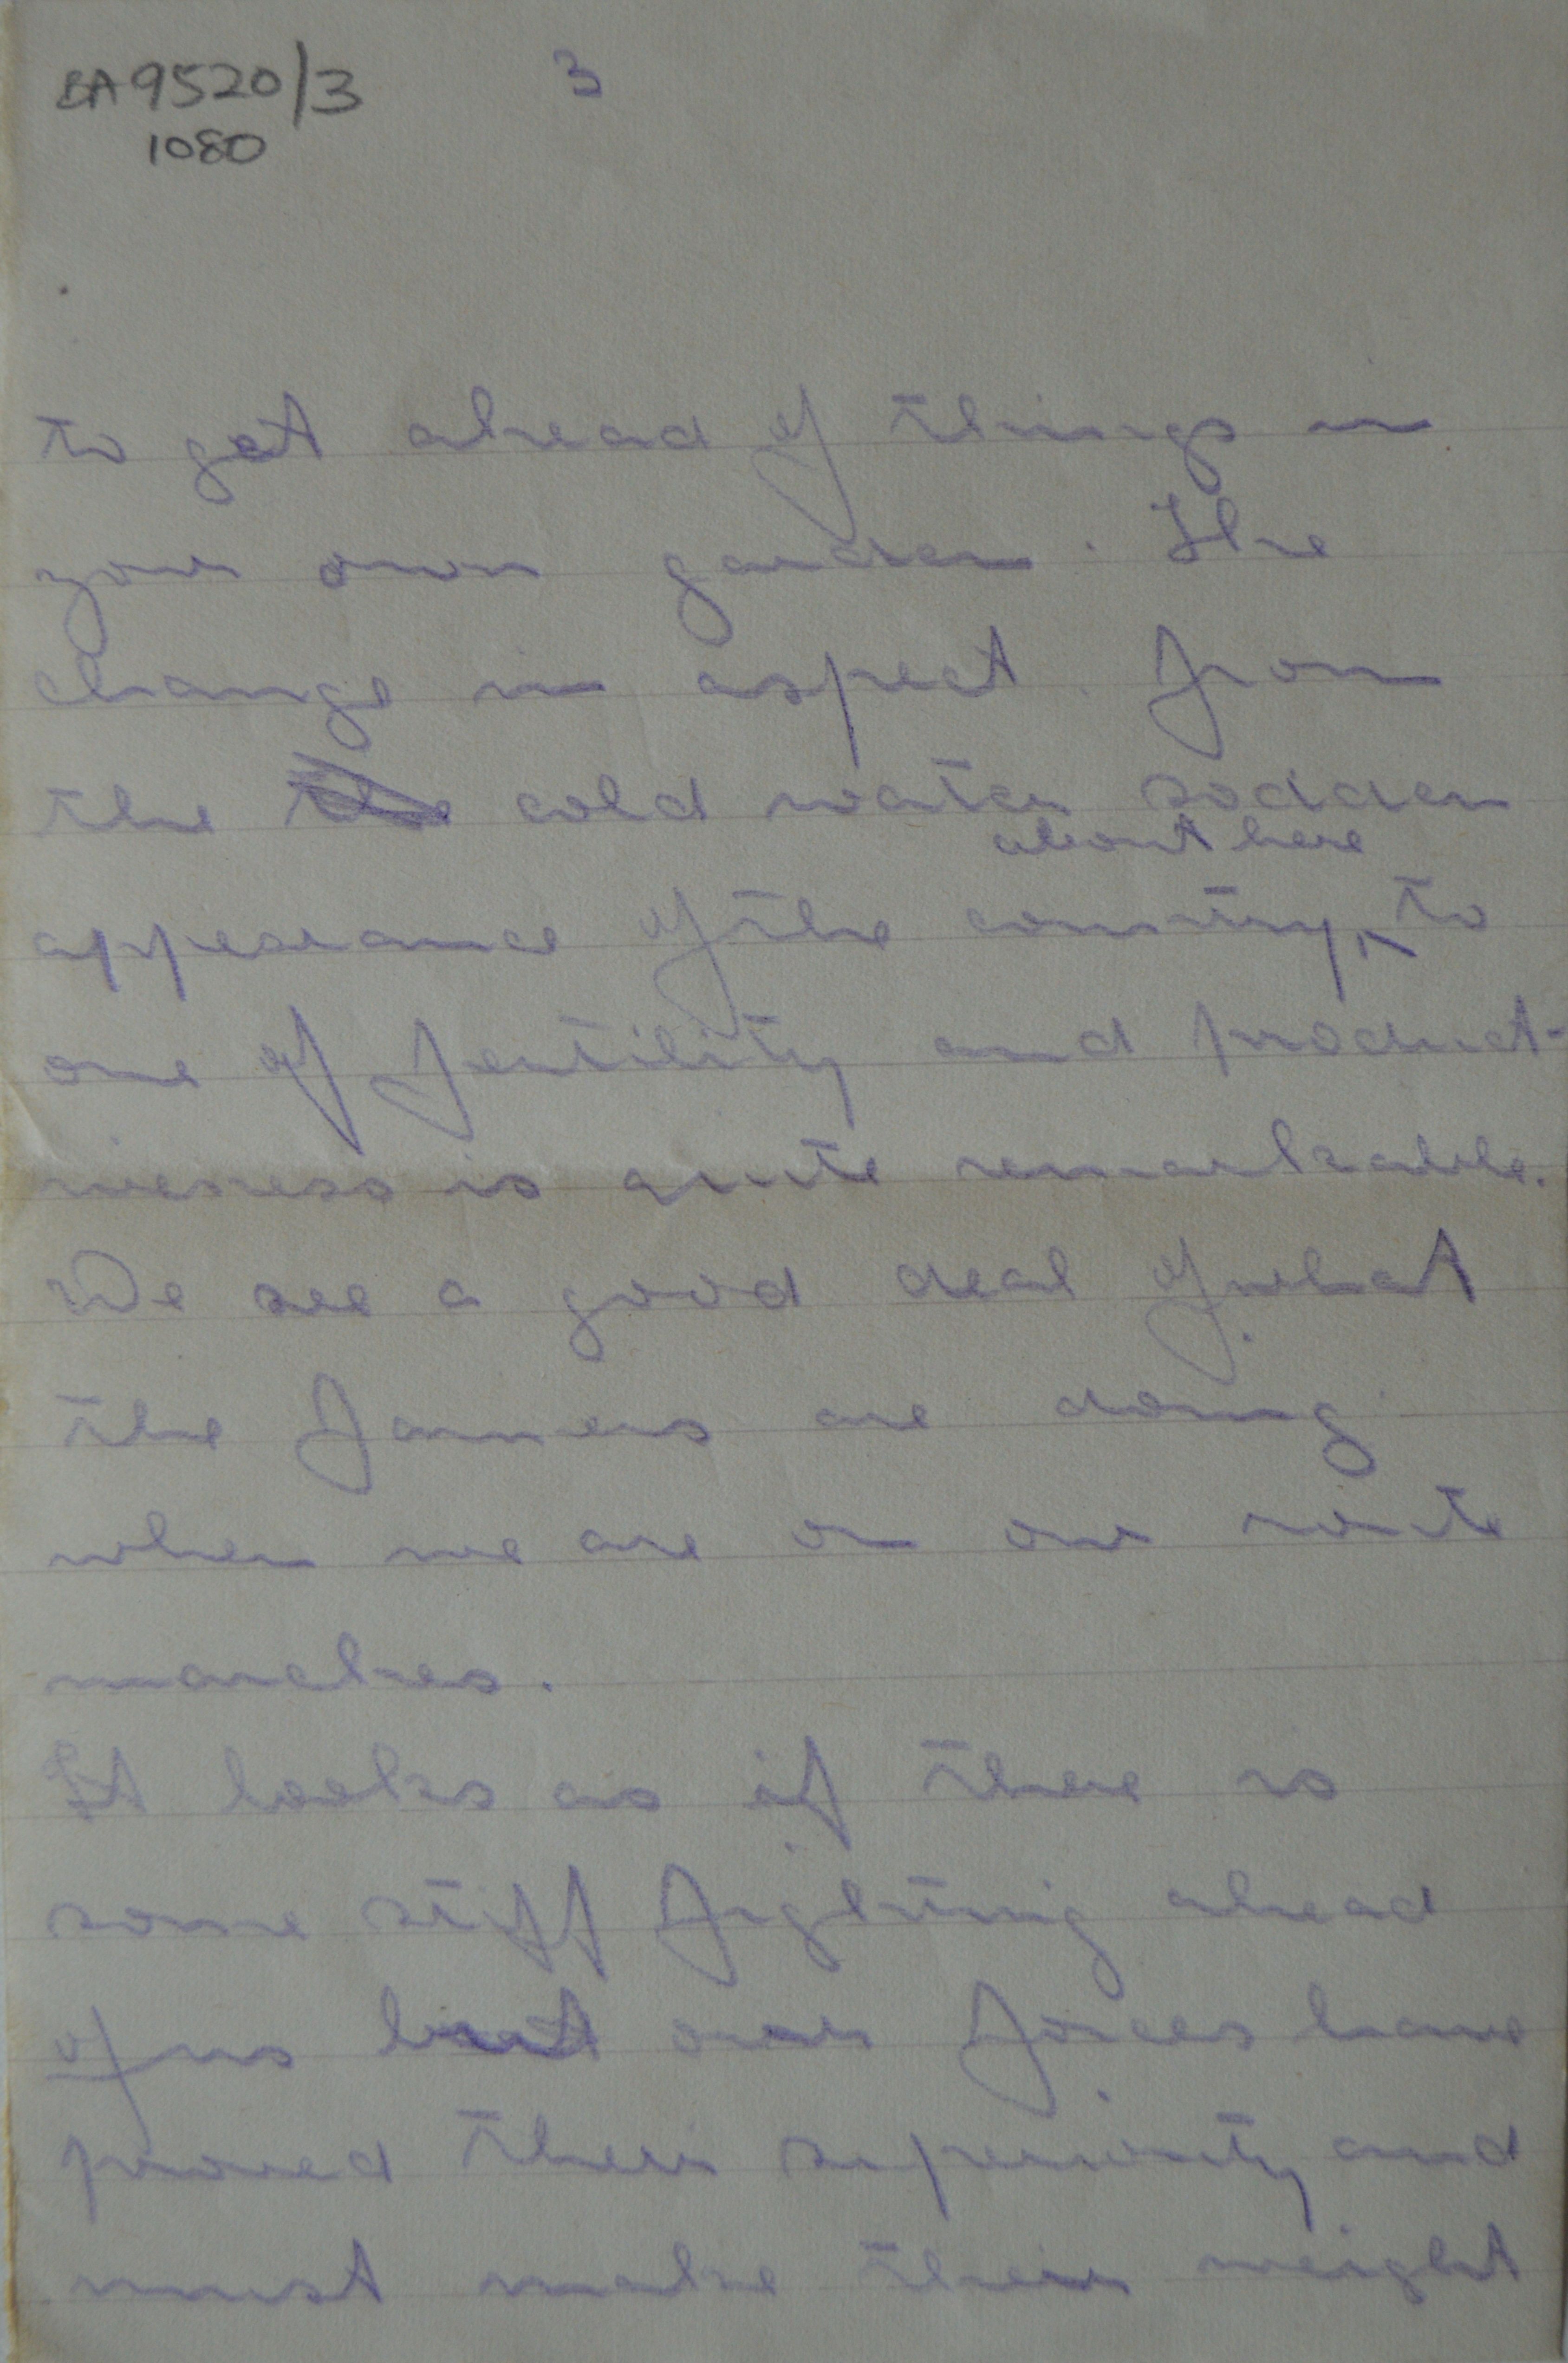 BA9520/3
1080
3
to get ahead of things in
your own garden. The
change in aspect from
the the cold water sodden
about here
appearance of the country, to
one of fertility and product-
iveness is quite remarkable.
We see a good deal of what
the farmers are doing
when we are on our route
marches.
It looks as if there is
some stiff fighting ahead
of us but our forces have
proved their superiority and
must make their weight